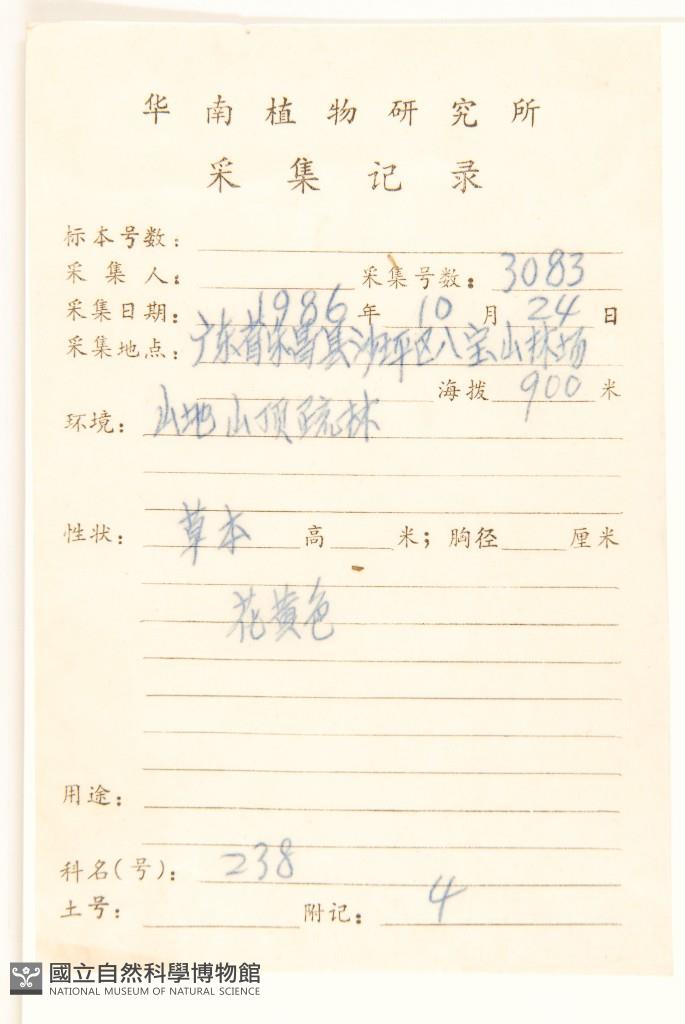 华南植物研究所
采集记录
标本号数：
采集人： 采集号数：3083
采集日期：1986年10月24日
采集地点：广东省乐昌县沙坪区八宝山林场
海拨900米
环境：山地山顶疏林
性状：草本 高 米；胸径 厘米
花黄色
用途：
科名(号)：238
土号： 附记：4
國立自然科學博物館
NATIONAL MUSEUM OF NATURAL SCIENCE